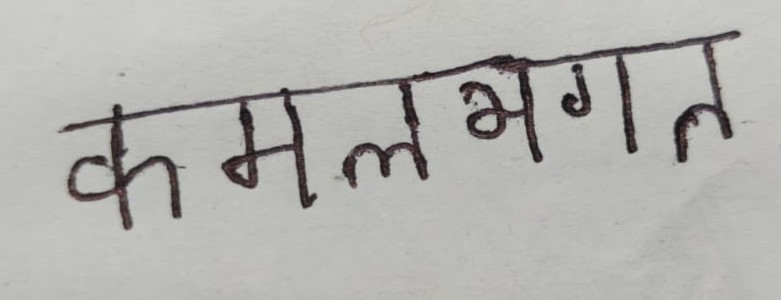 कमलभगत